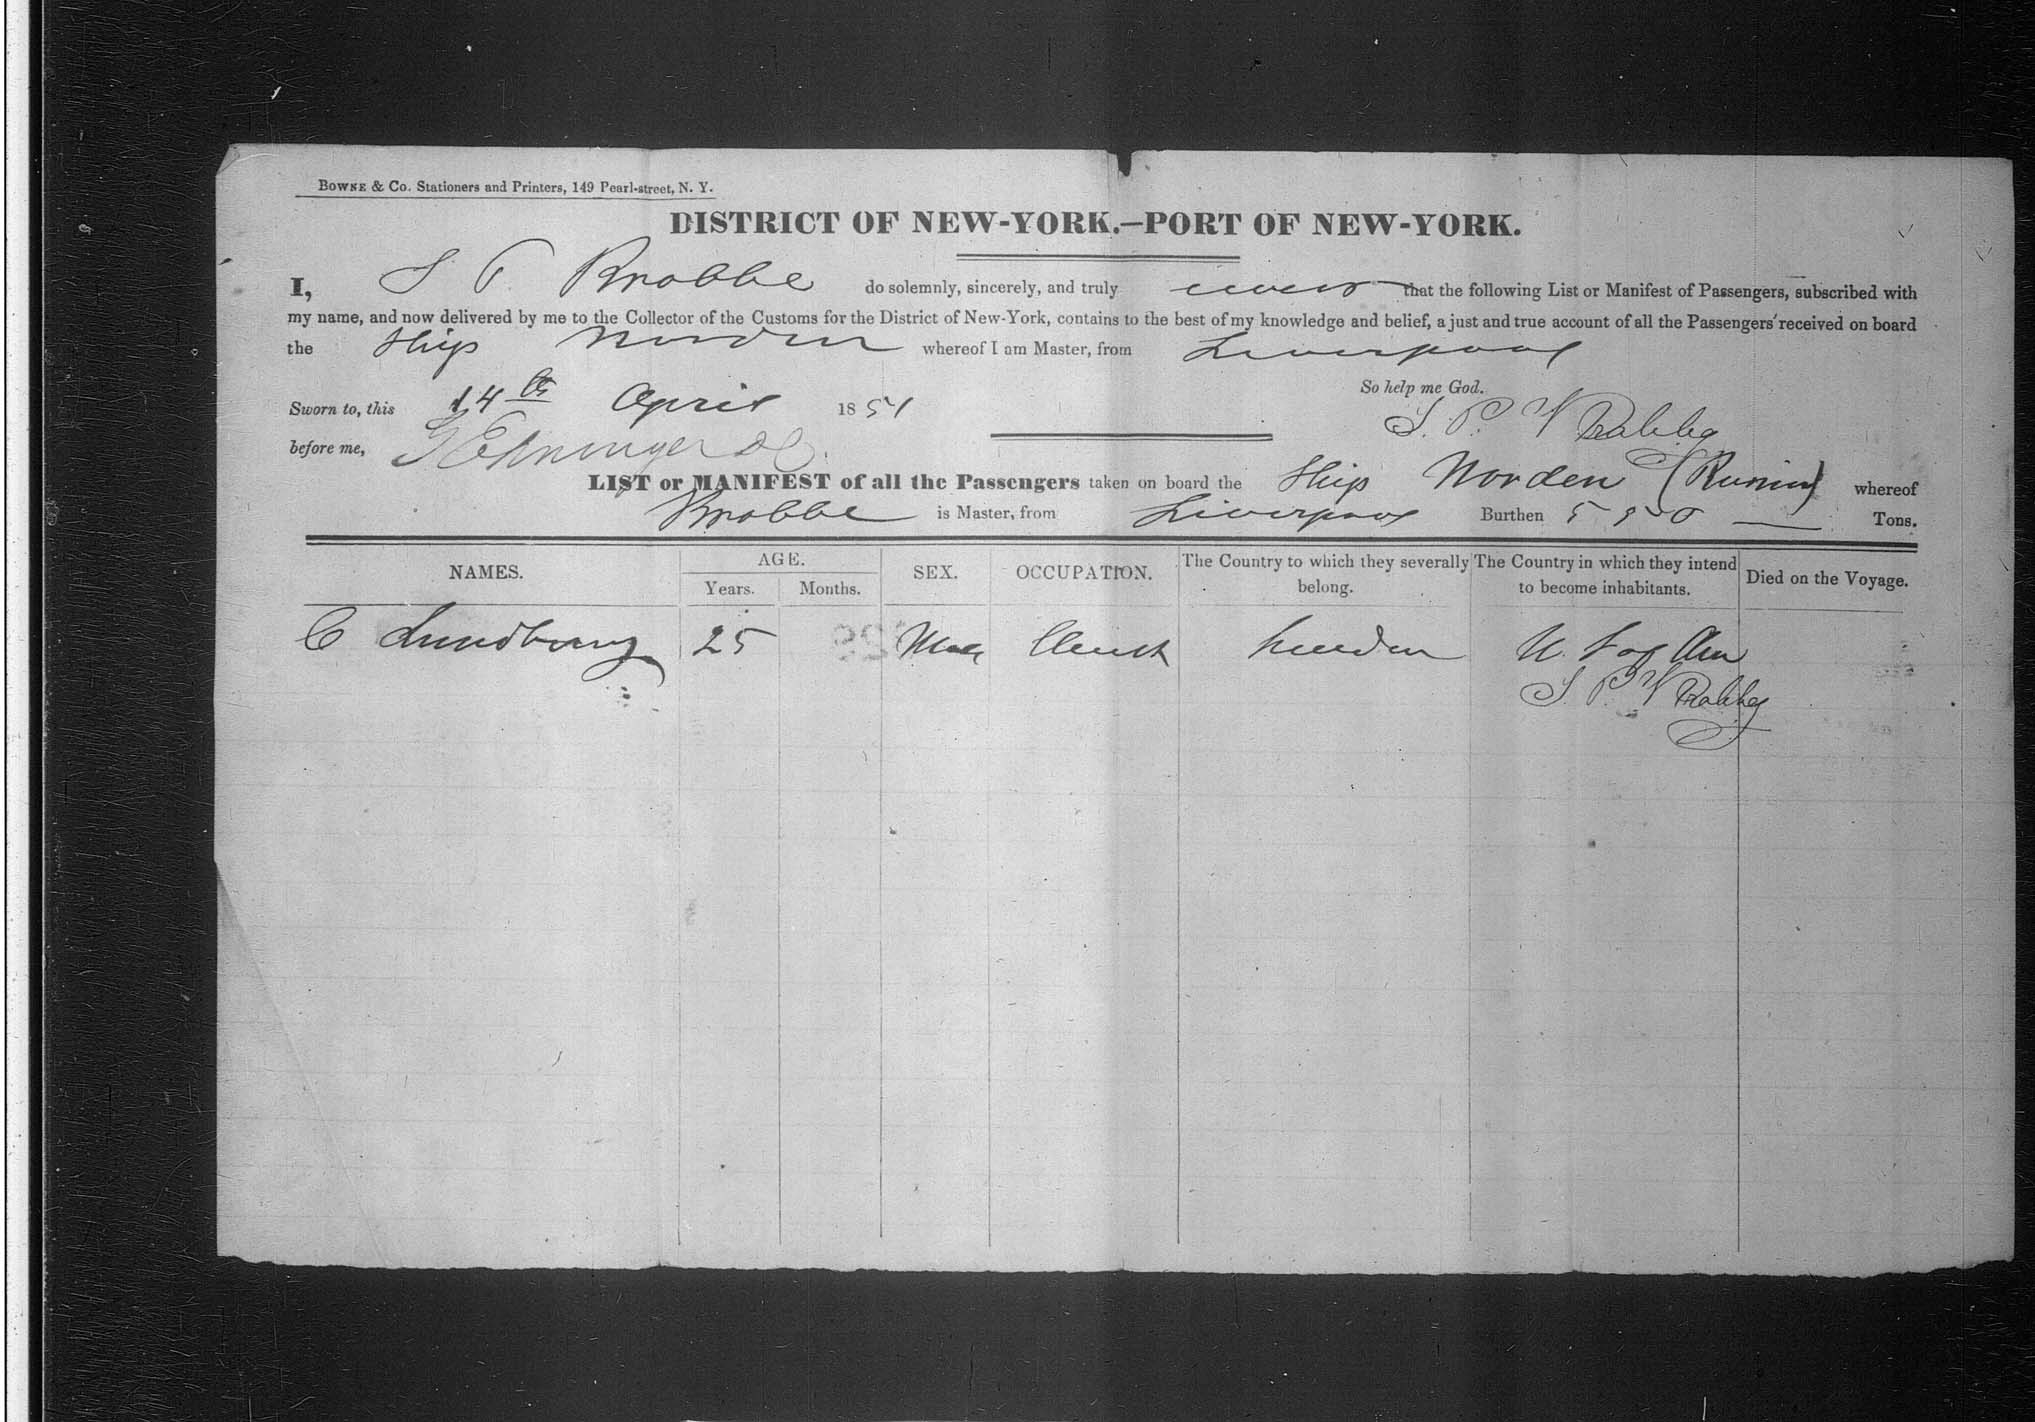 BOWNE & CO. Stationers and Printers, 149 Pearl-street, N. Y.
DISTRICT OF NEW-YORK.—PORT OF NEW-YORK.
I, S. P. Knabbe do solemnly, sincerely, and truly swear that the following List or Manifest of Passengers, subscribed with
my name, and now delivered by me to the Collector of the Customs for the District of New-York, contains to the best of my knowledge and belief, a just and true account of all the Passengers received on board
the Ship Norden whereof I am Master, from Liverpool
So help me God.
Sworn to, this 14th April 1851
S. P. Knabbe
before me,
LIST or MANIFEST of all the Passengers taken on board the Ship Norden whereof
Knabbe is Master, from Liverpool Burthen 550 — Tons.
NAMES. AGE. SEX. OCCUPATION. The Country to which they severally belong. The Country in which they intend to become inhabitants. Died on the Voyage.
Years. Months.
C Lundbourg 25 Male Clerk Sweden U. S of Am
S. P. Knabbe